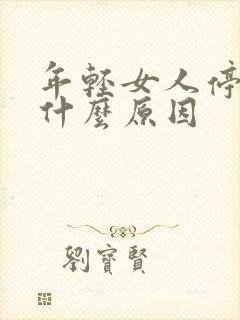 年輕女人停
什麼原因
劉寶賢